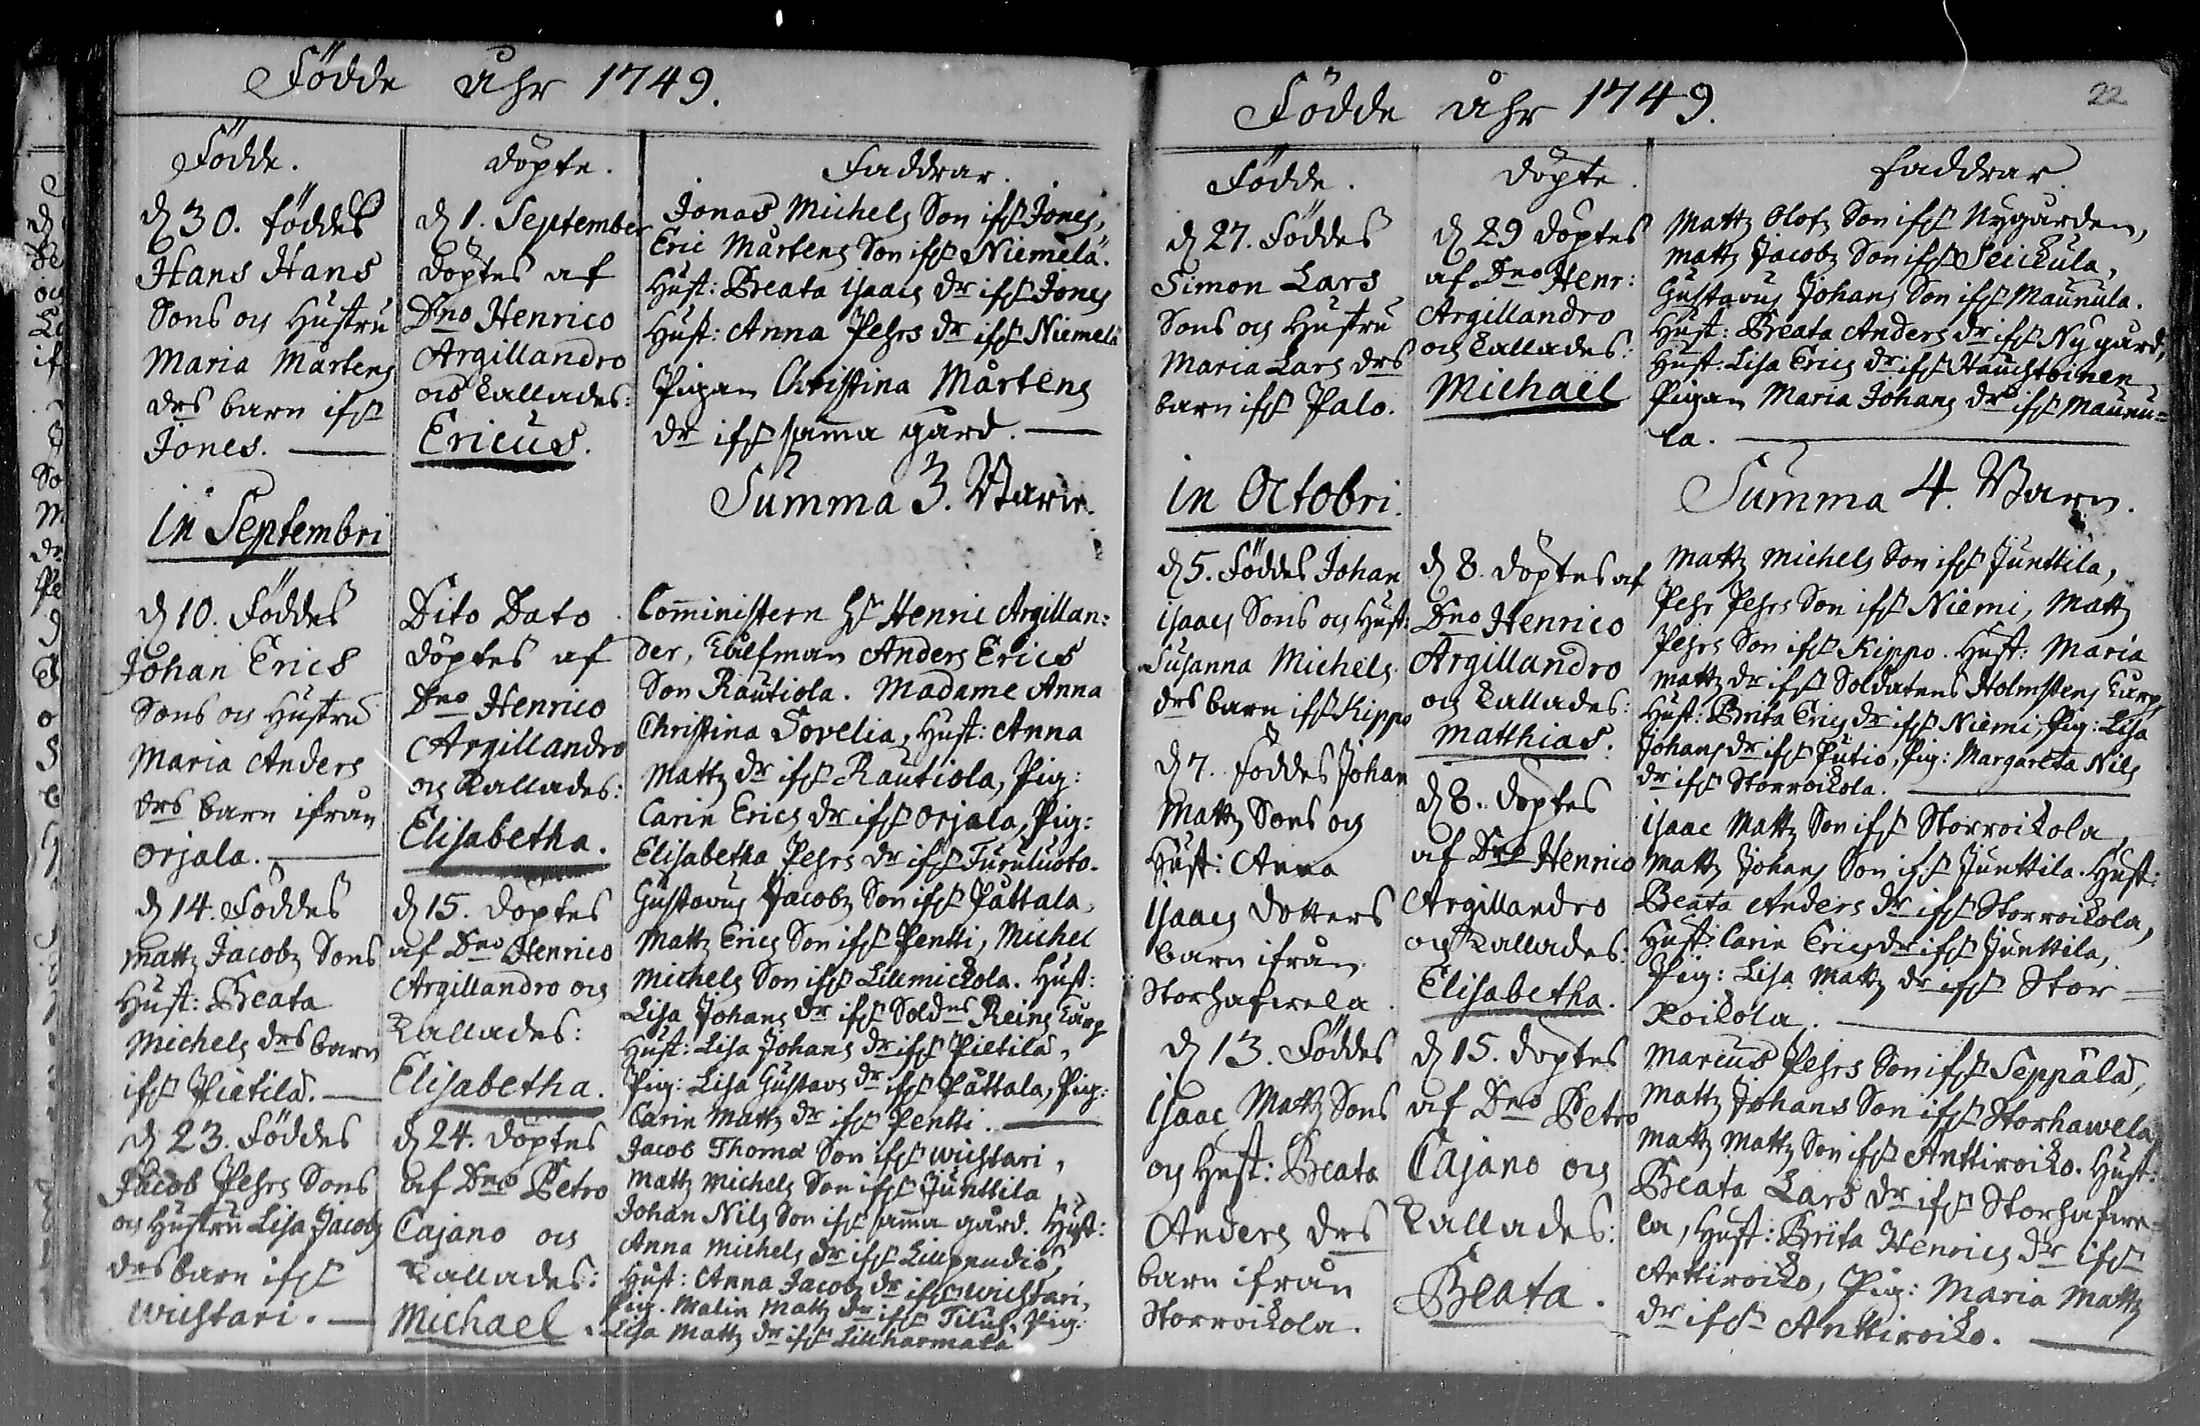 Födde åhr 1749.
Födde.
d 30. föddes
Hans Hans
Sons og Hustru
Maria Mårtens
drs barn ifrå
Jones.
in Septembri
d 10. Föddes
Johan Erics
Sons og Hustru
Maria Anders
drs barn ifrån
Orjala.
d 14. Föddes
Mattz Jacobz Sons
Hust: Beata
Michels drs barn
ifrå Pietilä.
d 23. Föddes
Jacob Pehrs Sons
og Hustru Lisa Jacobz
drs barn ifrå
Wichtari.
Döpte.
d 1. September
döptes af
Dno Henrico
Argillandro
og kallades:
Ericus.
Dito Dato
döptes af
Dno Henrico
Argillandro
og kallades:
Elisabetha.
d 15. döptes
af Dno Henrico
Argillandro og
kallades:
Elisabetha.
d 24. döptes
af Dno Petro
Cajano og
kallades:
Michael.
Faddrar.
Jonas Michels Son ifrå Jones,
Eric Mårtens Son ifrå Niemelä.
Hust: Beata Isaacs dr ifrå Jones
Hust: Anna Pehrs dr ifrå Niemelä
Pigan Christina Mårtens
dr ifrå samma gård.
Summa 3. Barn.
Comministern Hr Henric Argillan:
der, Anders Erics
Son Rautiola. Madame Anna
Christina Sovelia, Hust: Anna
Mattz dr ifrå Rautiola, Pig:
Carin Erics dr ifrå Orjala, Pig:
Elisabetha Pehrs dr ifrå Turuluoto.
Gustavus Jacobz Son ifrå Påttala,
Mattz Erics Son ifrå Pentti, Michel
Michels Son ifrå Lillmickola. Hust:
Lisa Johans dr ifrå Soldns Reins Karp
Hust: Lisa Johans dr ifrå Pietilä,
Pig: Lisa Gustavs dr ifrå Påttala, Pig:
Carin Mattz dr ifrå Pentti.
Jacob Thomæ Son ifrå Wichtari,
Mattz Michels Son ifrå Junttila
Johan Nils Son ifrå samma gård. Hust:
Anna Michels dr ifrå Lillpendis,
Hust: Anna Jacobz dr ifrå Wichtari,
Pig. Malin Mattz dr ifrå Tilus, Pig:
Lisa Mattz dr ifrå Lillharmala
Födde åhr 1749.
22
Födde.
d 27. Föddes
Simon Lars
Sons og Hustru
Maria Lars drs
barn ifrå Palo.
in Octobri.
d 5. Föddes Johan
Isaacs Sons og Hust:
Susanna Michels
drs barn ifrå Kippo
d 7. Föddes Johan
Mattz Sons og
Hust: Anna
Isaacs dotters
barn ifrån
Storhafwela.
d 13. Föddes
Isaac Mattz Sons
og Hust: Beata
Anders drs
barn ifrån
Storroikola.
Döpte.
d 29 döptes
af Dno Henr:
Argillandro
og kallades:
Michael
d 8. döptes af
Dno Henrico
Argillandro
og kallades:
Matthias.
d 8. döptes
af Dno Henrico
Argillandro
og kallades:
Elisabetha.
d 15. döptes
af Dno Petro
Cajano og
kallades:
Beata.
Faddrar
Mattz Olofz Son ifrå Nygården,
Mattz Jacobz Son ifrå Seickula,
Gustavus Johans Son ifrå Maunula.
Hust: Beata Anders dr ifrå Nygård,
Hust: Lisa Erics dr ifrå Hauchtoinen,
Pigan Maria Johans dr ifrå Maunu=
la.
Summa 4. Barn.
Mattz Michels Son ifrå Junttila,
Pehr Pehrs Son ifrå Niemi, Mattz
Pehrs Son ifrå Kippo. Hust: Maria
Mattz dr ifrå Soldatens Holmstens Karp,
Hust: Brita Erics dr ifrå Niemi, Pig: Lisa
Johans dr ifrå Putio, Pig: Margareta Nils
dr ifrå Storroikola.
Isaac Mattz Son ifrå Storroikola,
Mattz Johans Son ifrå Junttila. Hust:
Beata Anders dr ifrå Storroikola,
Hust: Carin Erics dr ifrå Junttila,
Pig: Lisa Mattz dr ifrå Stor=
Roikola.
Marcus Pehrs Son ifrå Seppälä,
Mattz Johans Son ifrå Storhawela,
Mattz Mattz Son ifrå Anttiroiko. Hust:
Beata Lars dr ifrå Storhafwe=
la, Hust: Brita Henrics dr ifrå
Anttiroiko, Pig: Maria Mattz
dr ifrå Anttiroiko.